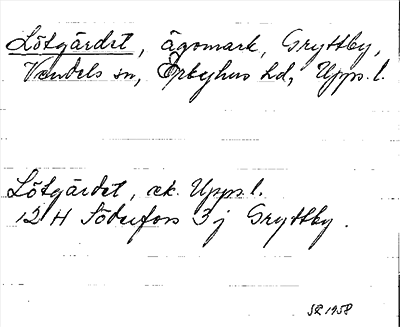 Lötgärdet, ägomark, Gryttby,
Vendels sn, Örbyhus hd, Upps. l.
Lötgärdet, ek. Upps. l.
12 H Söderfors 3 j Gryttby.
SR 1958